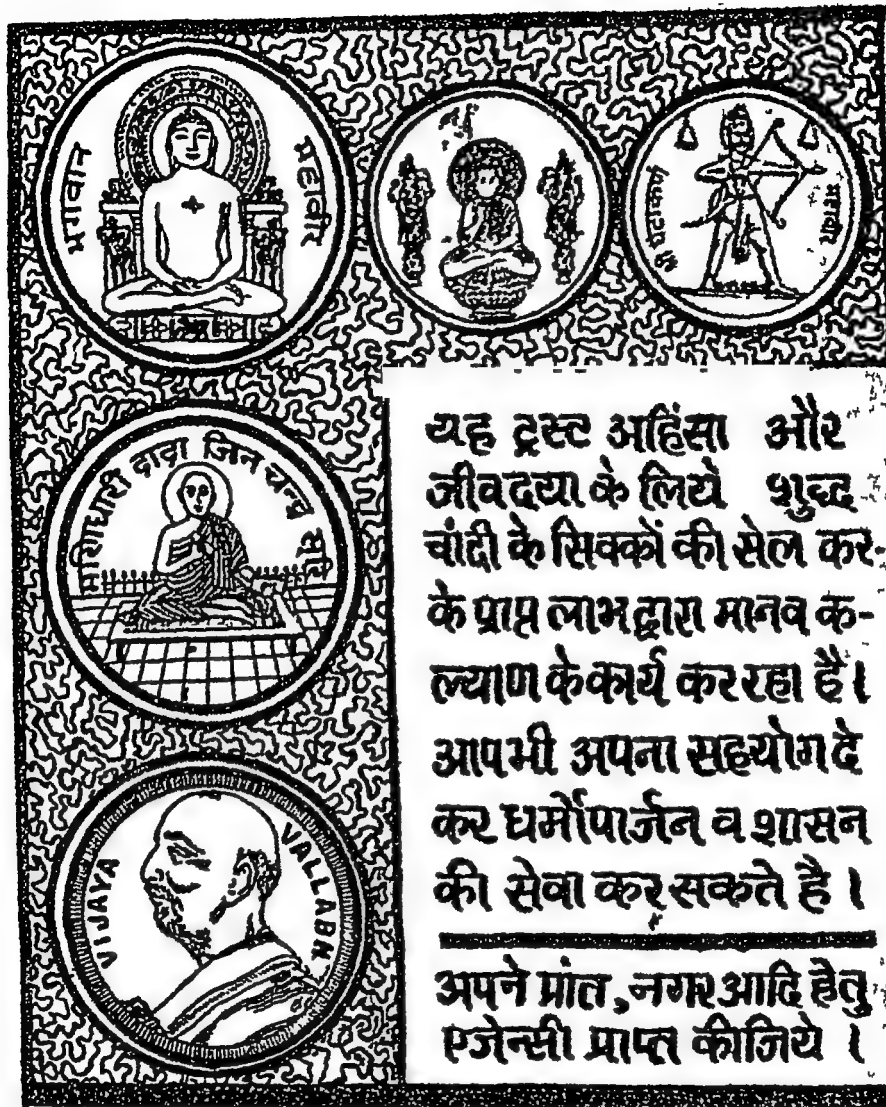 भगवान महावीर
श्री घंटाकर्ण महावीर
मणिधारी दादा जिन चन्द्र सूरि
VIJAYA VALLABH
यह ट्रस्ट अहिंसा और
जीवदया के लिये शुद्ध
चांदी के सिक्कों की सेल कर-
के प्राप्त लाभ द्वारा मानव क-
ल्याण के कार्य कर रहा है।
आप भी अपना सहयोग दे
कर धर्मोपार्जन व शासन
की सेवा कर सकते है ।
अपने प्रांत, नगर आदि हेतु
एजेन्सी प्राप्त कीजिये ।